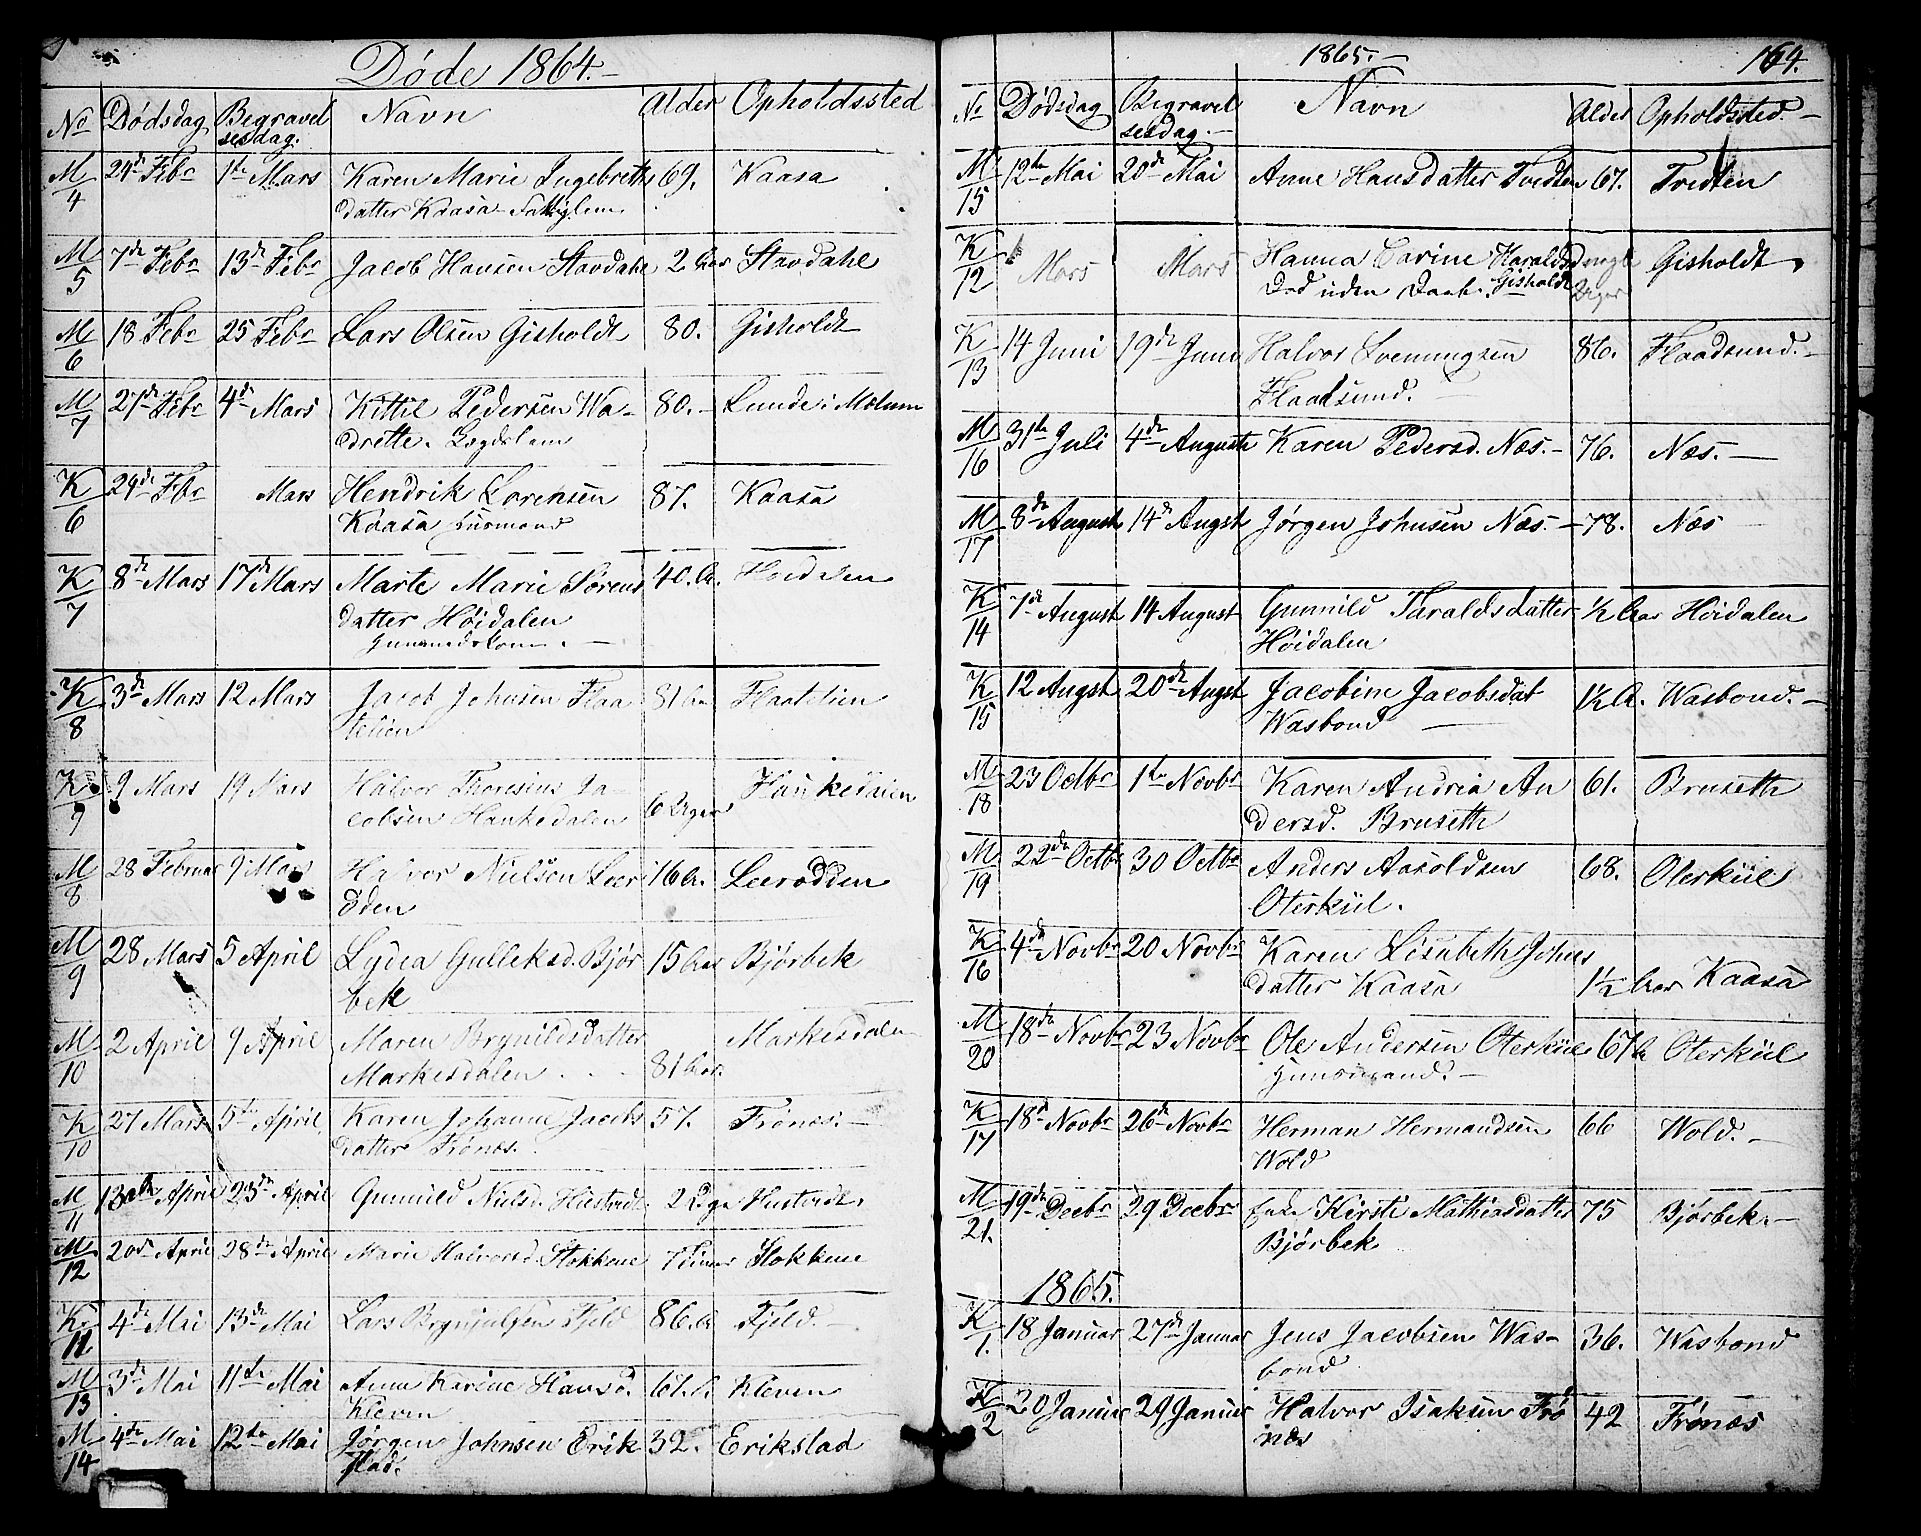 Døde 1864.
No Dødsdag Begravel Navn Alder Opholdssted
sesdag.
M/4 24de Febr 1te Mars Karen Marie Ingebreths 69. Kaasa
datter Kaasa
M/5 7de Febr 13de Febr Jacob Hansen Stavdahl 2 Aar Stavdahl
M/6 18 Febr 25 Febr Lars Olsen Gisholdt 80. Gisholdt
M/7 27de Febr 4de Mars Kittil Pedersen Wa- 80. Lunde i Molum
drette. Lægdslem
K/6 29de Fbr Mars Hendrik Lorensen 87. Kaasa
Kaasa Huusmand
K/7 8de Mars 17de Mars Marte Marie Sørens 40. A. Høidalen
datter Høidalen
K/8 3de Mars 12 Mars Jacob Johnsen Flaa 81 Aar Flaatelien
telien
K/9 9 Mars 19 Mars Halvor Thoresius Ja-
cobsen Hankedalen 6 Uger Hankedalen
M/8 28 Februar 9 Mars Halvor Nielsen Leer 16 A. Leerodden
ødden
M/9 28 Mars 5 April Lydia Gulleksd. Bjør 15 Aar Bjørbek
bek
M/10 2 April 9 April Maren Brynildsdatter Markesdalen
Markesdalen 81 Aar.
K/10 27 Mars 5te April Karen Johanne Jacobs 57. Trónæs.
datter Trónæs.
M/11 13de April 23de April Gunnild Nielsd. Hustvedt 2 Dge Hustvedt.
M/12 20de April 28de April Marie Halvorsd. Stokkene 7 Timer Stokkene
K/11 4de Mai 13de Mai Lars Brynjulfsen Fjeld 86. A Fjeld.
M/13 3de Mai 11te Mai Anne Karine Hansd. 61. A. Kleven
Kleven
M/14 4de Mai 12te Mai Jørgen Johnsen Erik 32. Erikstad
stad.
1865. 164.
No Dødsdag Begravel Navn Alder Opholdsted.
sesdag.
M/15 12te Mai 20de Mai Anne Hansdatter Tvedten 67. Tvedten
K/12 Mars Mars Hanna Carine Haraldsd Gisholdt
Død uden Daab. Gisholdt Uger
K/13 14 Juni 19de Juni Halvor Svenungsen 86. Flaadsund.
Flaadsund.
M/16 31te Juli 4de Auguste Karen Pedersd. Næs. 76. Næs.
M/17 8de August 14de Augst Jørgen Johnsen Næs. 78. Næs
K/14 7de August 14 August Gunnild Taraldsdatter ½ Aar Høidalen
Høidalen
K/15 12 Augst 20de Augst Jacobine Jacobsdat 1½ A. Wasbond.
Wasbond
M/18 23 Octbr 1te Novbr Karen Andria An 61. Bruseth
dersd. Bruseth
M/19 22de Octbr 30 Octbr Anders Aasoldsen 68. Oterkiil
Oterkiil.
K/16 4de Novbr 20 Novbr Karen Lisabeth Johns
datter Kaasa 1½ Aar Kaasa
M/20 18de Novbr 23 Novbr Ole Andersen Oterkiil 67 A Oterkiil
Huusmand.
K/17 18de Novbr 26de Novbr Herman Hermandsen 66 Wold.
Wold
M/21. 19de Decbr 29 Decbr Enke Kirsti Mathiasdatter 75 Bjørbek.
Bjørbek
1865.
K/1. 18 Januar 27de Januar Jens Jacobsen Was- 36. Wasbond
bond
K/2 20 Januar 29 Januar Halvor Isaksen Trô 42 Trónæs
næs